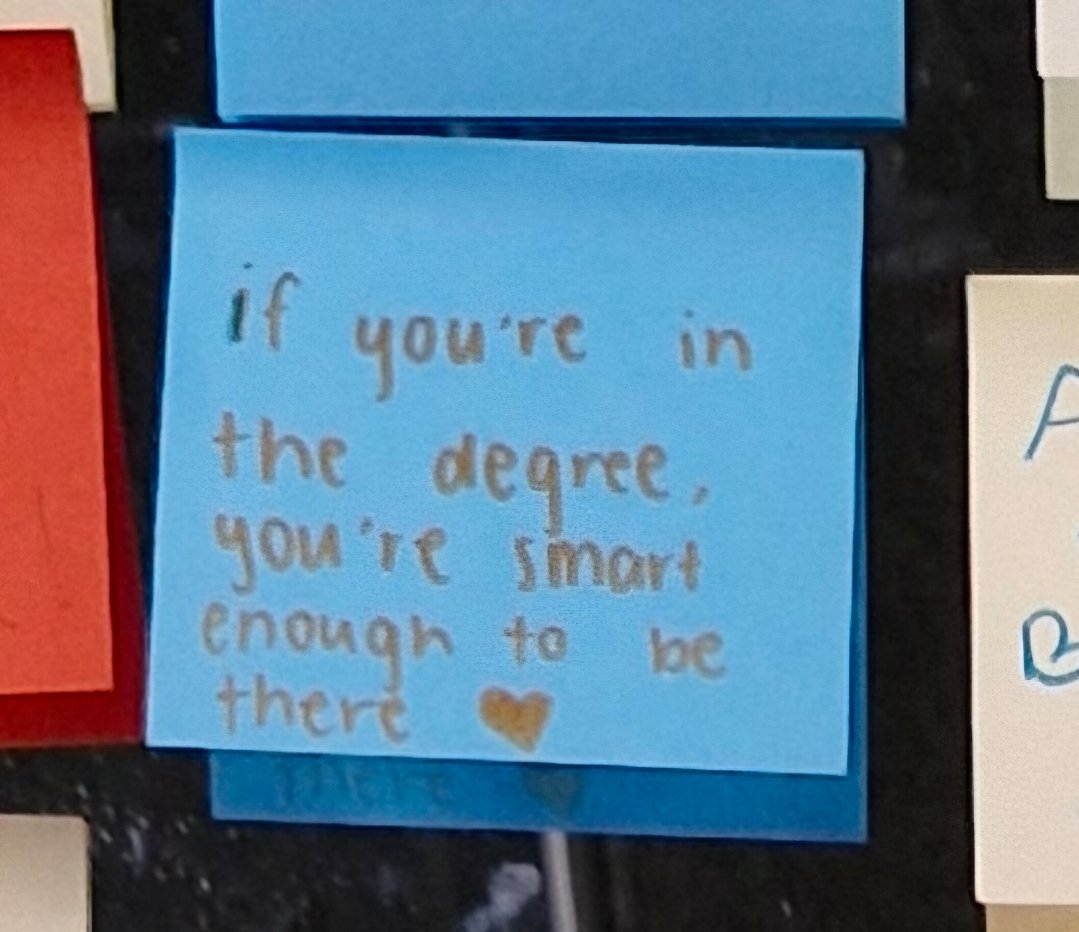 if you're in
the degree,
you're smart
enough to be
there ♥
A
B